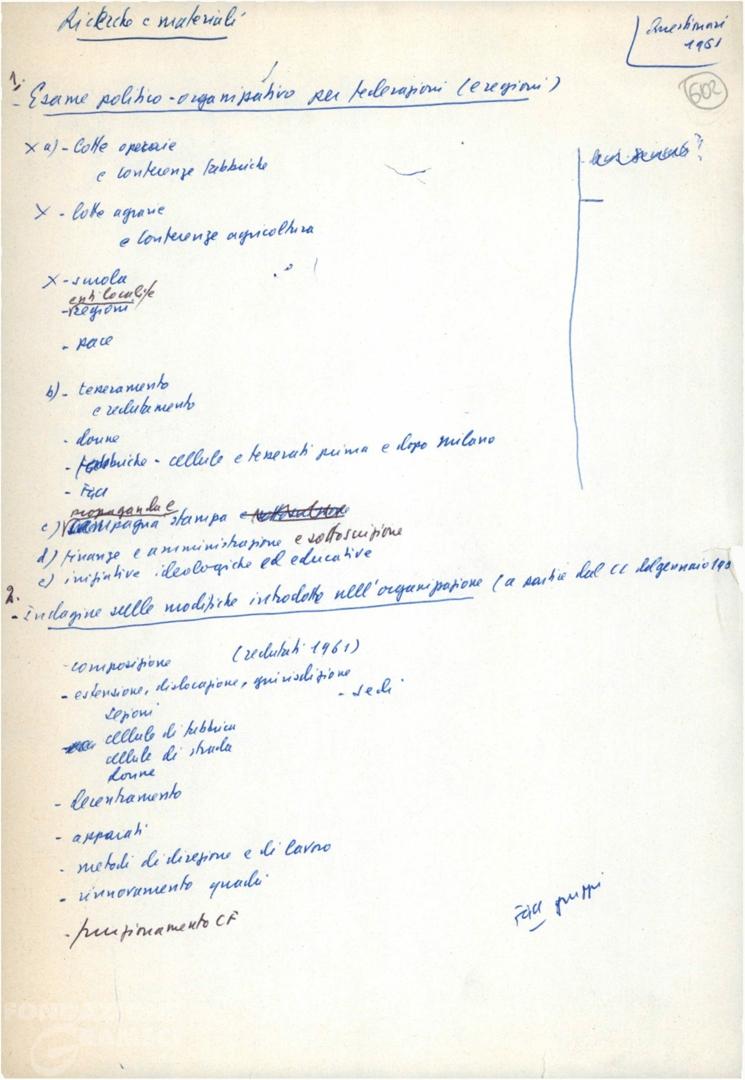 Ricerche e materiali
Questionari
1961
602
1.
- Esame politico-organizzativo per federazioni (e regioni)
X a) - Lotte operaie
e conferenze fabbriche
X - lotte agrarie
e conferenze agricoltura
X - scuola
enti locali/e
- Regioni
- pace
b) - tesseramento
e reclutamento
- donne
- fabbriche - cellule e tesserati prima e dopo Milano
- FGCI
propaganda e
c) campagna stampa e sottoscrizione
d) finanze e amministrazione e sottoscrizione
e) iniziative ideologiche ed educative
2.
- Indagine sulle modifiche introdotte nell'organizzazione (a partire dal CC del gennaio 19
- composizione (reclutati 1961)
- estensione, dislocazione, giurisdizione
- sedi
sezioni
cellule di fabbrica
cellule di strada
donne
- decentramento
- apparati
- metodi di direzione e di lavoro
- rinnovamento quadri
- funzionamento CF
FGCI gruppi
FONDAZIONE
GRAMSCI